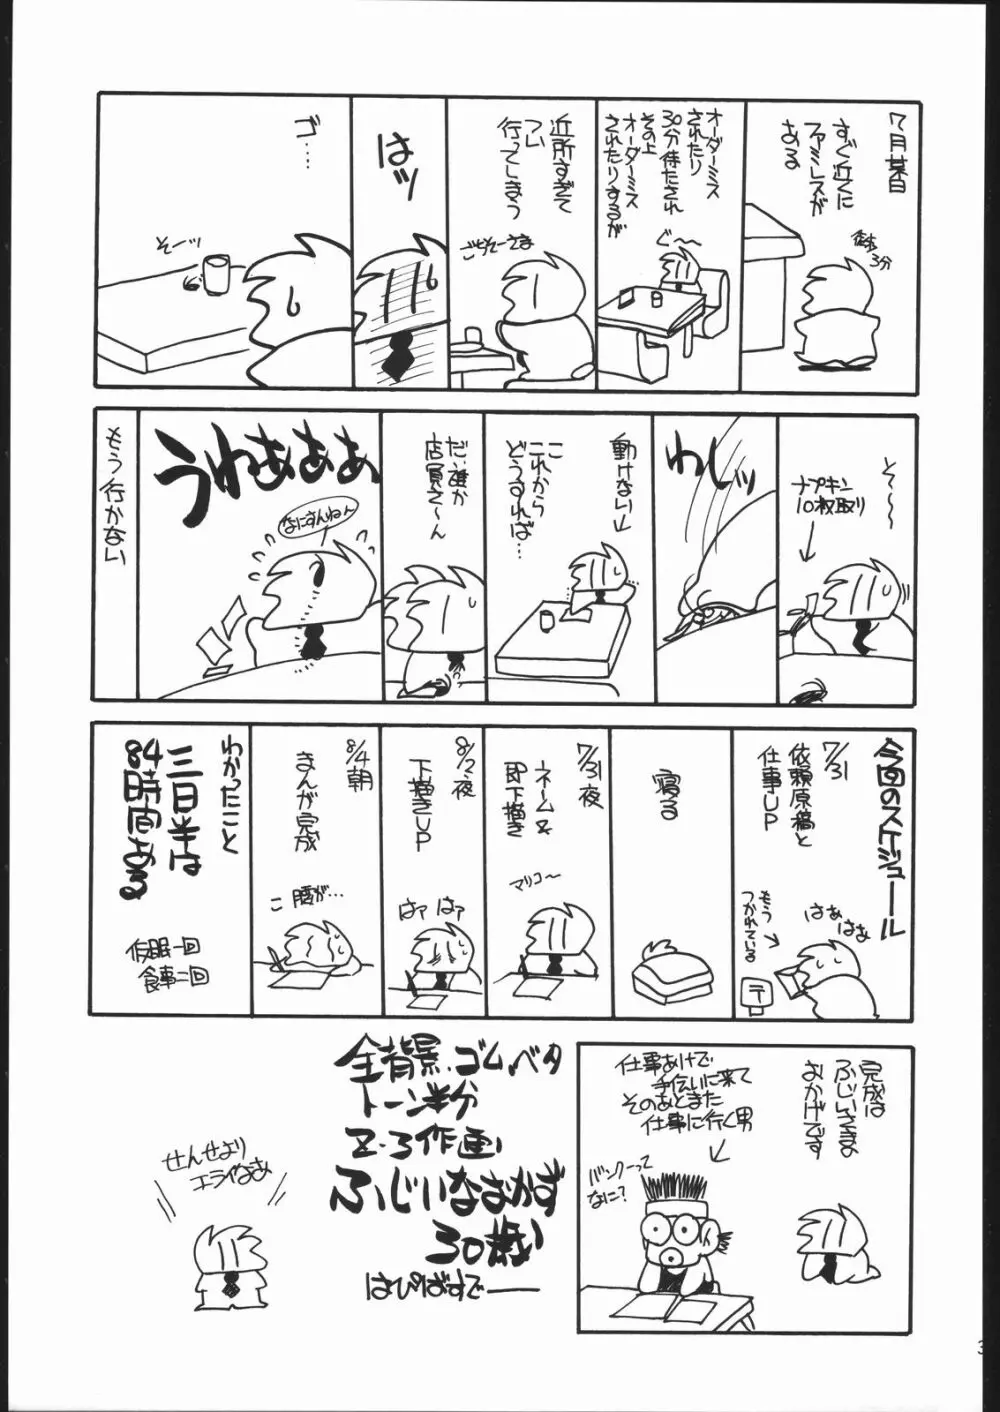 7月某日
すぐ近くに
ファミレスが
ある
徒歩
3分
オーダーミス
されたり
30分待たされ
その上
オーダーミス
されたりするが
ぐ〜
近所すぎて
つい
行ってしまう
ごちそーさま
はッ
ゴ……
そーッ
そ〜〜
ナプキン
10枚取り
わしッ
動けない
これから
どうすれば…
だ、誰か
店員さ〜ん
うわあああ
なにすんねん
もう行かない
今回のスケジュール
7/31
依頼原稿と
仕事UP
はぁ
はぁ
もう
つかれている
〒
寝る
7/31夜
ネーム&
即下描き
マリコ〜
8/2夜
下描きUP
はァ はァ
8/4朝
まんが完成
こ 腰が…
わかったこと
三日半は
84時間ある
仮眠一回
食事二回
完成は
ふじいさまの
おかげです
仕事あけで
手伝いに来て
そのあとまた
仕事に行く男
バンクーって
なに?
全背景、ゴム、ベタ
トーン半分
Z・3作画
ふじいなおかず
30歳
はぴばすでー
せんせより
エライなあ
3